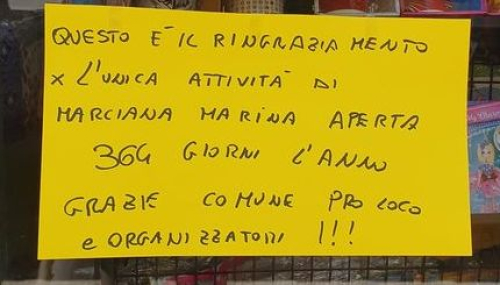 QUESTO È IL RINGRAZIAMENTO
x L'UNICA ATTIVITÀ DI
MARCIANA MARINA APERTA
364 GIORNI L'ANNO
GRAZIE COMUNE PRO LOCO
e ORGANIZZATORI !!!